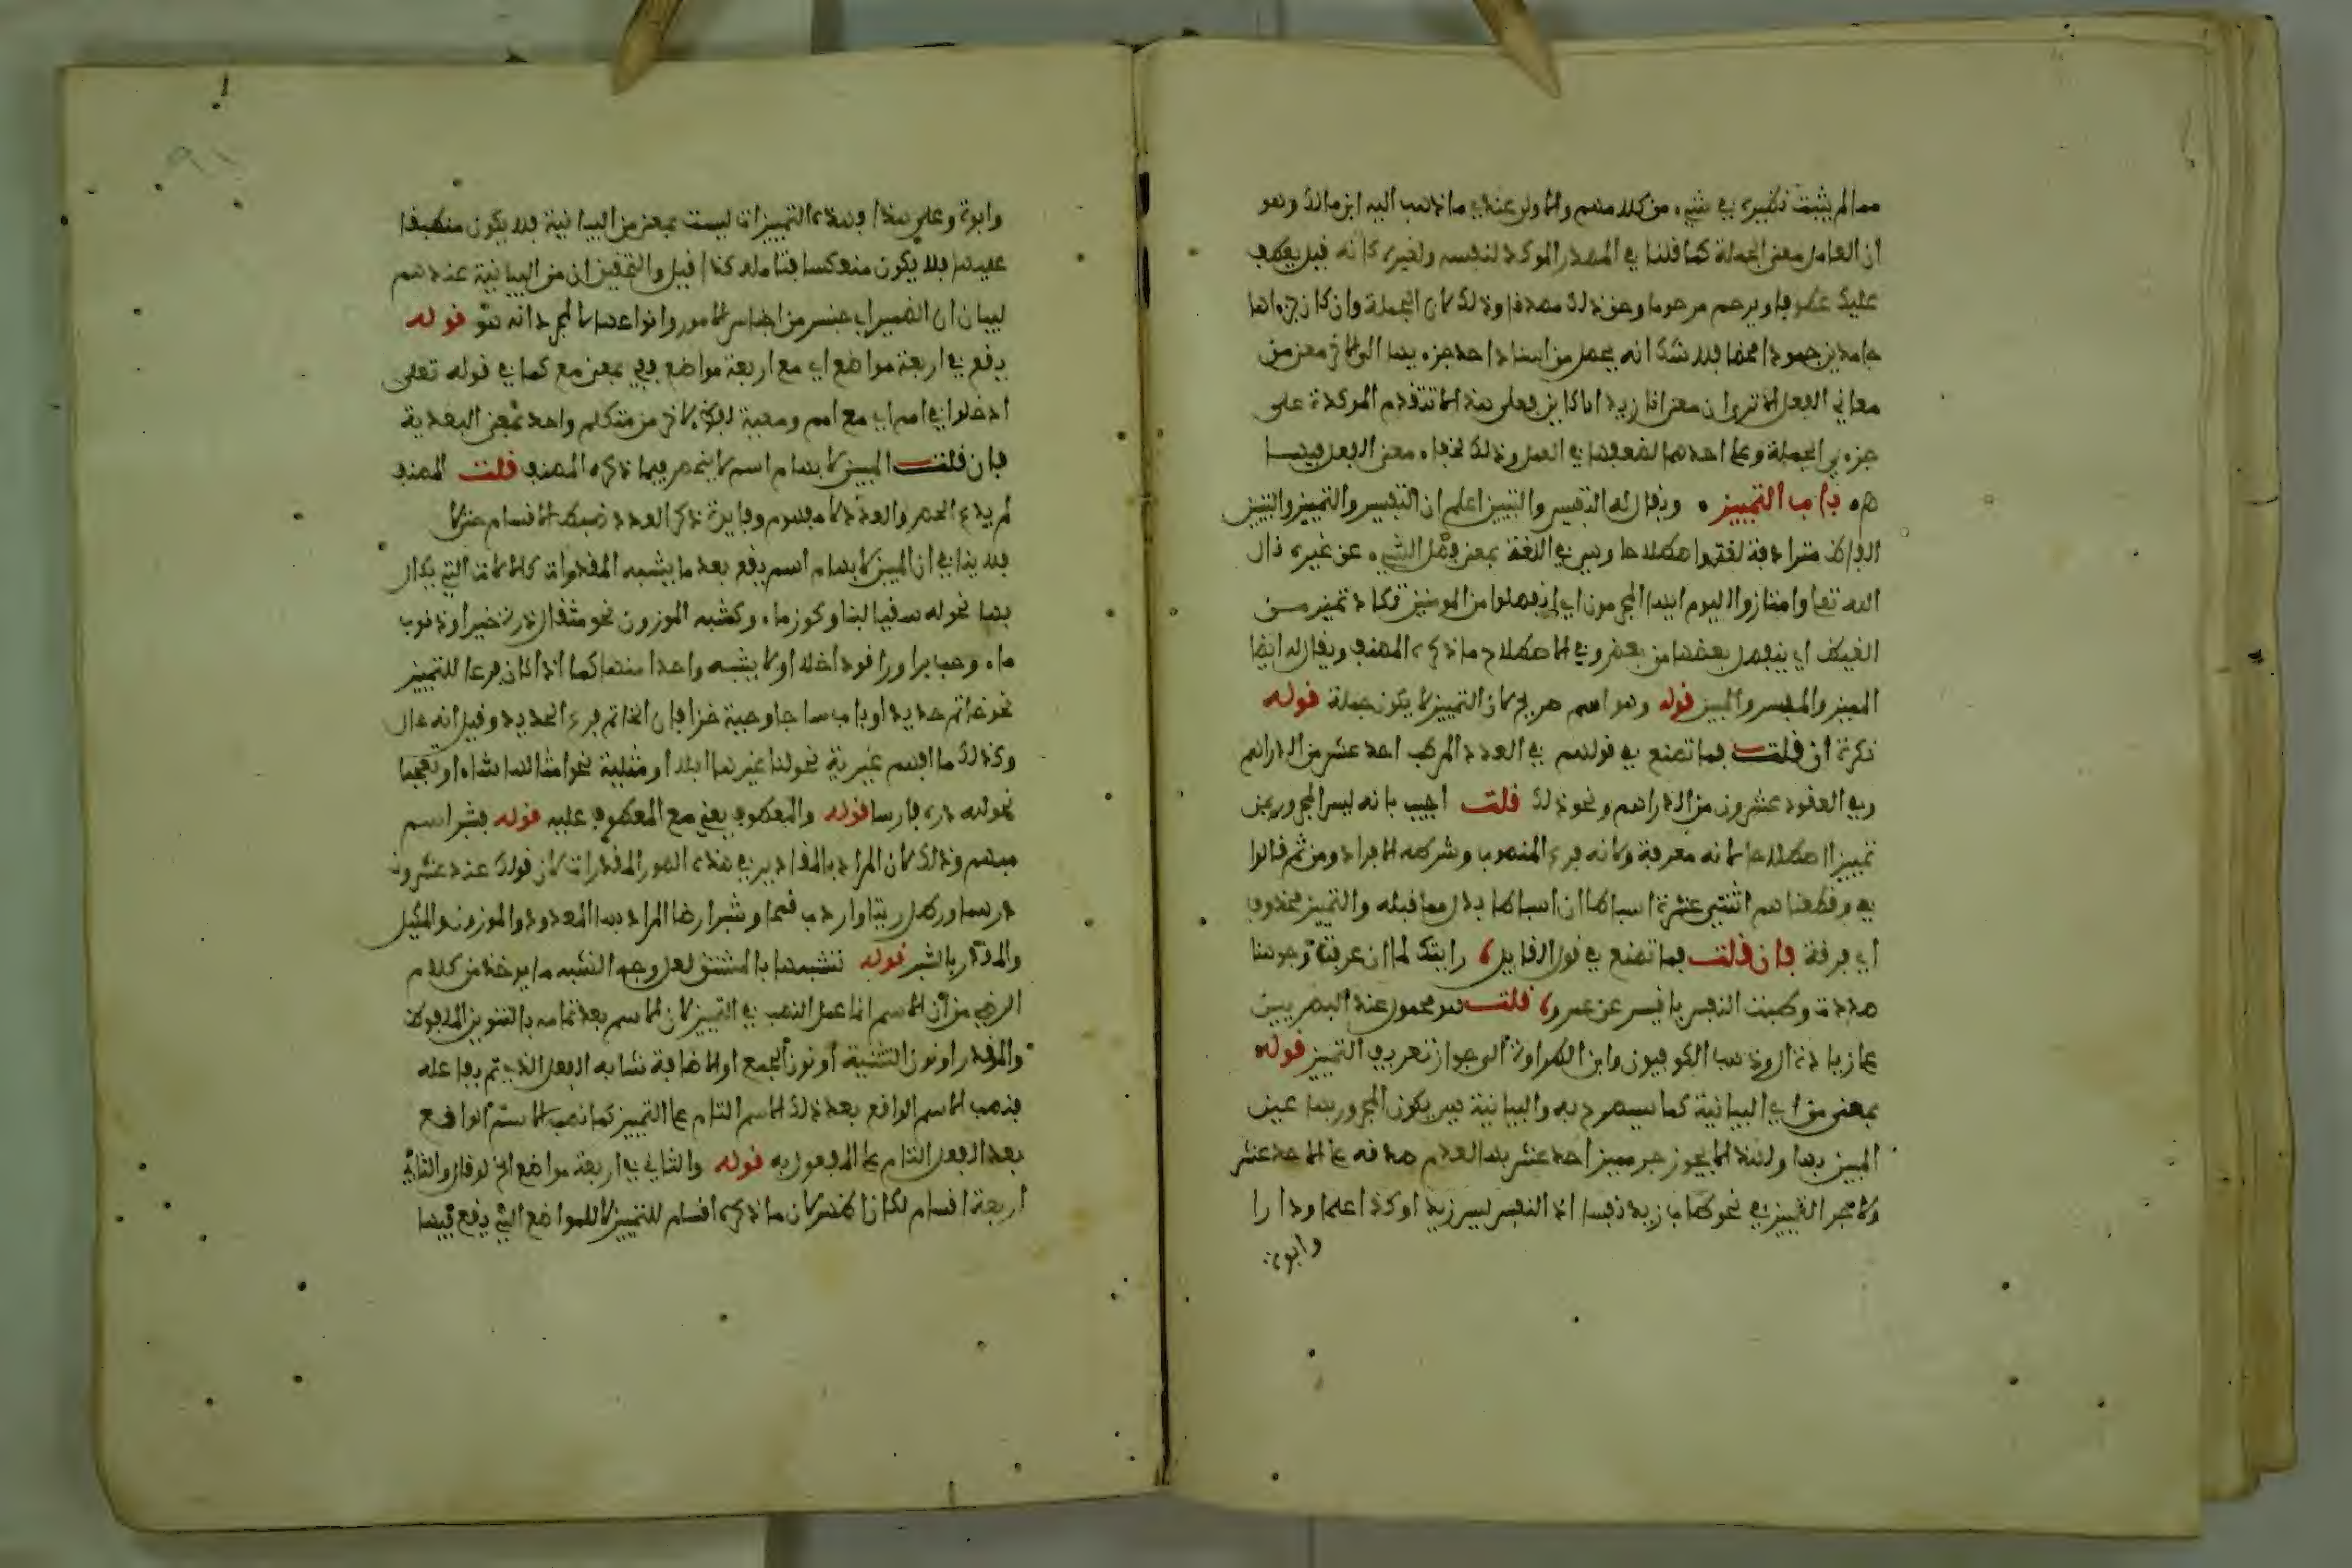 مما لم يثبت نظيره في شيء من كلامهم والاولى عندي ما ذهب اليه ابن مالك وهو
ان العامل معنى الجملة كما قلنا في المصدر الموكد لنفسه ولغيره كانه قيل يعطف
عليك عطوفا ويرحم مرحوما وحق ذلك مصدقا وذلك لان الجملة وان كان جزءاها
جامدين جمودا محضا فلا شك انه يحصل من اسناد احد جزءيها الى الاخر معنى من
معاني الفعل الا ترى ان معنى انا زيد انا كاين فعلى هذا لا تتقدم الموكدة على
جزءي الجملة وعلى احدهما لضعفها في العمل وذلك لخفاء معنى الفعل فيهما
ه باب التمييز ويقال له التفسير والتبيين اعلم ان التفسير والتمييز والتبيين
الفاظ مترادفة لغة واصطلاحا وهي في اللغة بمعنى فصل الشيء عن غيره قال
الله تعا وامتازوا اليوم ايها المجرمون اي انفصلوا من المومنين تكاد تميز من
الغيظ اي ينفصل بعضها من بعض وفي الاصطلاح ما ذكره المصنف ويقال له ايضا
المميز والمفسر والمبين قوله وهو اسم صريح لان التمييز لا يكون جملة قوله
نكرة ان قلت فما تصنع في قولهم في العدد المركب احد عشر من الدراهم
وفي العقود عشرون من الدراهم ونحو ذلك قلت اجيب بانه ليس المجرور بمن
تمييزا اصطلاحا لانه معرفة ولانه فرع المنصوب وشرطه الافراد ومن ثم قالوا
في وقطعناهم اثنتي عشرة اسباطا ان اسباطا بدل مما قبله والتمييز محذوف
اي فرقة فان قلت فما تصنع في قول القايل رايتك لما ان عرفت وجوهنا
صددت وطبت النفس يا قيس عن عمرو قلت هو محمول عند البصريين
على زيادة ال وذهب الكوفيون وابن الطراوة الى جواز تعريف التمييز قوله
بمعنى من اي البيانية كما سيصرح به والبيانية هي يكون المجرور بها عين
المبين بها ولهذا لا يجوز جر مميز احد عشر بها لعدم صدقه على الاحد عشر
ولا يجر التمييز في نحو طاب زيد نفسا اذ النفس ليس زيد او كذا علما ودارا
وابوة
وابوة وعلى هذا فهذه التمييزات ليست بمعنى من البيانية فلا يكون منطبقا
عليها فلا يكون منعكسا فتامله كذا قيل والتحقيق ان من البيانية عندهم
لبيان ان الضمير اي جنس من اجناس الامور وانواعها لا لمجرد انه هو قوله
يقع في اربعة مواضع اي مع اربعة مواضع ففي بمعنى مع كما في قوله تعلى
ادخلوا في امم اي مع امم ومعية من متكلم واحد بمعنى البعدية
فان قلت المبين لابهام اسم لا ينحصر فيما ذكره المصنف قلت المصنف
لم يدع الحصر والعدد لا مفهوم وفايدة ذكر العدد ضبط الاقسام حتى لا
فلا ينافي ان المبين لابهام اسم يقع بعد ما يشبه المقدرات كالالات التي يكال
بها نحو له سقيا لبنا وكوز ماء وكشبه الموزون نحو مثقال ذرة خيرا وذنوب
ماء وحب برا وراقود خلا او لا يشبه واحدا منها كما اذا كان فرعا للتمييز
نحو خاتم حديدا وباب ساجا وجبة خزا فان الخاتم فرع الحديد وقيل انه حال
وكذلك ما افهم غيرية نحو لنا غيرها ابلا او مثلية نحو امثالها شاء او تعجبا
نحو لله دره فارسا قوله والمعطوف يعني مع المعطوف عليه قوله فشر اسم
مبهم وذلك لان المراد بالمقادير في هذه الصور المقدرات لان قولك عند عشرون
درهما ورطل زيتا واردب قمحا وشبر ارضا المراد بها المعدود والموزون والمكيل
والمقدر بالشبر قوله تشبيها بالمشتق لعل وجه التشبه ما يوخذ من كلام
الرضي من ان الاسم انما عمل النصب في التمييز لان الاسم بعد تمامه بالتنوين الملفوظ
والمقدر او نون التثنية او نون الجمع او الاضافة شابه الفعل الذي تم بفاعله
فنصب الاسم الواقع بعد ذلك الاسم التام على التمييز كما نصب الاسم الواقع
بعد الفعل التام على المفعول به قوله والثاني في اربعة مواضع الخ لو قال والثاني
اربعة اقسام لكان اخصر لان ما ذكره اقسام للتمييز لا للمواضع التي يقع فيها